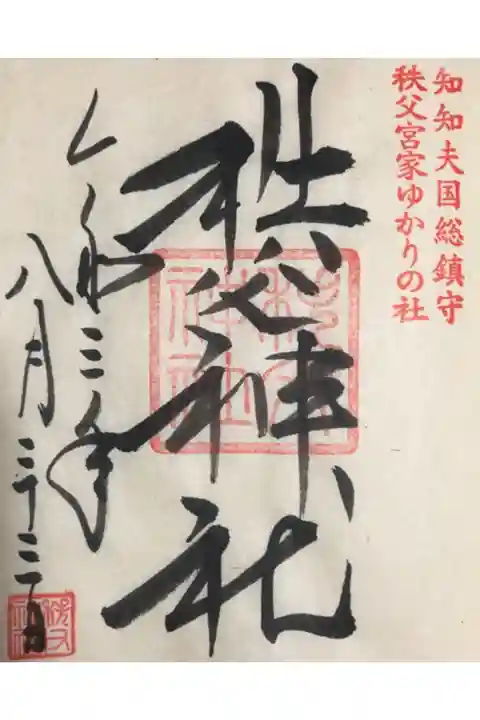 知知夫国総鎮守
秩父宮家ゆかりの社
秩父神社
秩父神社
令和三年
八月三十三日